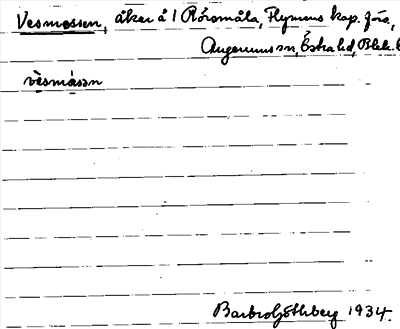 Vesmossen, åker å 1 Rörsmåla, Flymens kap. förs,
Augerums sn, Östra hd, Blek. l
vèsmåsən
Barbro Göthberg 1934.